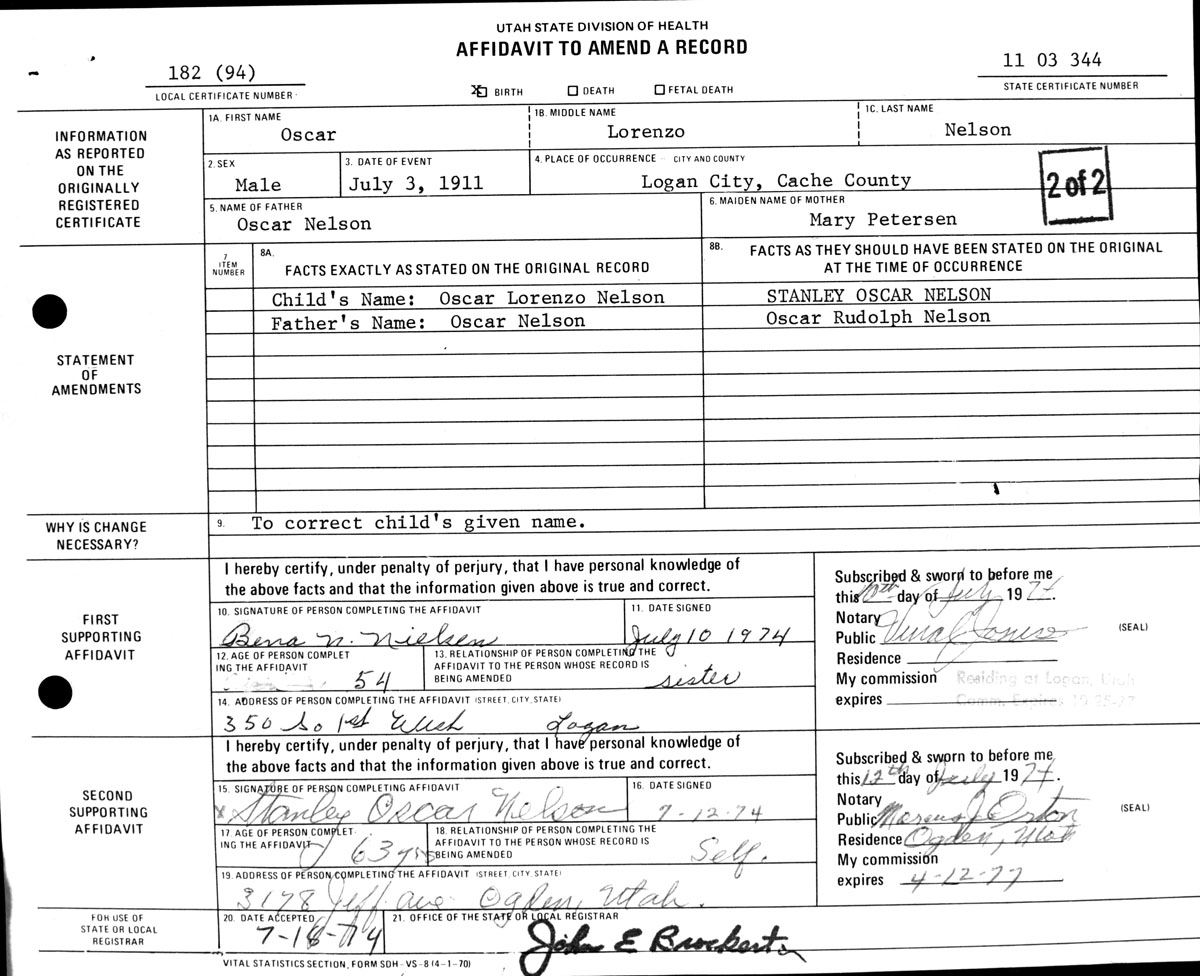 UTAH STATE DIVISION OF HEALTH
AFFIDAVIT TO AMEND A RECORD
182 (94)
LOCAL CERTIFICATE NUMBER
X BIRTH DEATH FETAL DEATH
11 03 344
STATE CERTIFICATE NUMBER
INFORMATION
AS REPORTED
ON THE
ORIGINALLY
REGISTERED
CERTIFICATE
1A. FIRST NAME
Oscar
1B. MIDDLE NAME
Lorenzo
1C. LAST NAME
Nelson
2. SEX
Male
3. DATE OF EVENT
July 3, 1911
4. PLACE OF OCCURRENCE CITY AND COUNTY
Logan City, Cache County
2 of 2
5. NAME OF FATHER
Oscar Nelson
6. MAIDEN NAME OF MOTHER
Mary Petersen
STATEMENT
OF
AMENDMENTS
7
ITEM
NUMBER
8A.
FACTS EXACTLY AS STATED ON THE ORIGINAL RECORD
8B. FACTS AS THEY SHOULD HAVE BEEN STATED ON THE ORIGINAL
AT THE TIME OF OCCURRENCE
Child's Name: Oscar Lorenzo Nelson
STANLEY OSCAR NELSON
Father's Name: Oscar Nelson
Oscar Rudolph Nelson
WHY IS CHANGE
NECESSARY?
9. To correct child's given name.
FIRST
SUPPORTING
AFFIDAVIT
I hereby certify, under penalty of perjury, that I have personal knowledge of
the above facts and that the information given above is true and correct.
10. SIGNATURE OF PERSON COMPLETING THE AFFIDAVIT
Bena N. Nielsen
11. DATE SIGNED
July 10 1974
12. AGE OF PERSON COMPLET
ING THE AFFIDAVIT
54
13. RELATIONSHIP OF PERSON COMPLETING THE
AFFIDAVIT TO THE PERSON WHOSE RECORD IS
BEING AMENDED
sister
14. ADDRESS OF PERSON COMPLETING THE AFFIDAVIT (STREET, CITY, STATE)
350 So 1st West Logan
Subscribed & sworn to before me
this 10th day of July 1974.
Notary
Public
Residence
My commission Residing at Logan, Utah
expires Comm. Expires 10-25-77
(SEAL)
SECOND
SUPPORTING
AFFIDAVIT
I hereby certify, under penalty of perjury, that I have personal knowledge of
the above facts and that the information given above is true and correct.
15. SIGNATURE OF PERSON COMPLETING AFFIDAVIT
x Stanley Oscar Nelson
16. DATE SIGNED
7-12-74
17. AGE OF PERSON COMPLET-
ING THE AFFIDAVIT
63 yrs
18. RELATIONSHIP OF PERSON COMPLETING THE
AFFIDAVIT TO THE PERSON WHOSE RECORD IS
BEING AMENDED
Self.
19. ADDRESS OF PERSON COMPLETING THE AFFIDAVIT (STREET, CITY, STATE)
3178 Jeff. Ave Ogden, Utah.
Subscribed & sworn to before me
this 12th day of July 1974.
Notary
Public Marcus J. Orton
Residence Ogden, Utah
My commission
expires 4-12-77
(SEAL)
FOR USE OF
STATE OR LOCAL
REGISTRAR
20. DATE ACCEPTED
7-18-74
21. OFFICE OF THE STATE OR LOCAL REGISTRAR
John E Brockert
VITAL STATISTICS SECTION, FORM SDH-VS-8 (4-1-70)